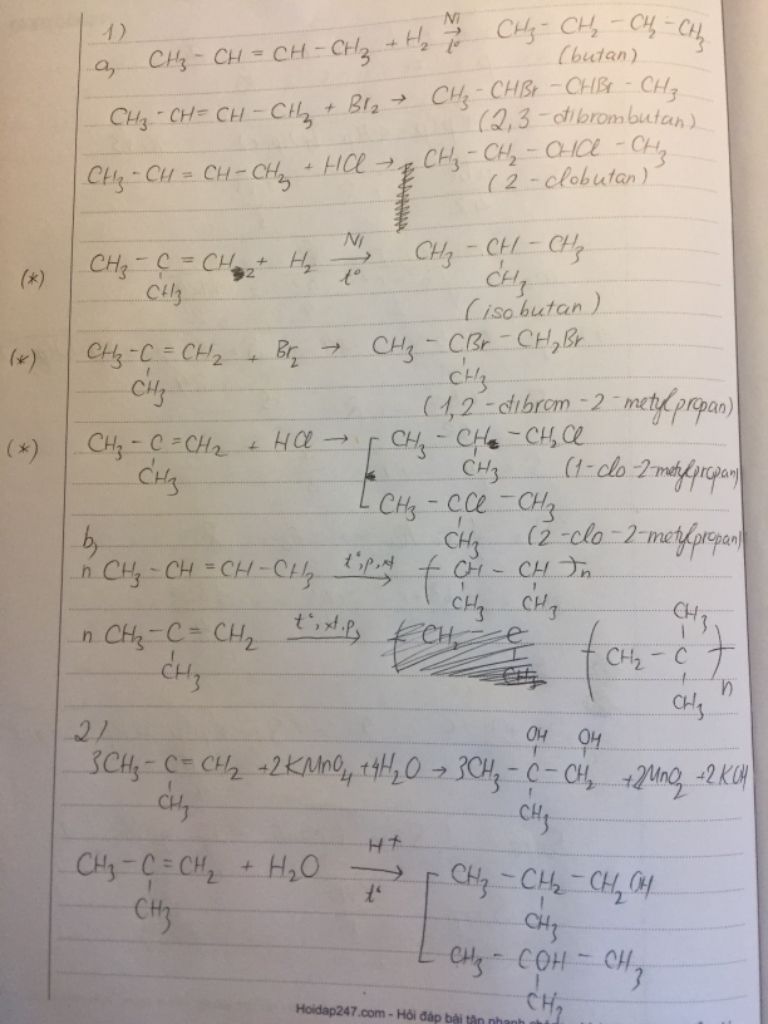 1)
a, CH3 - CH = CH - CH3 + H2 Ni → t° CH3 - CH2 - CH2 - CH3
(butan)
CH3 - CH = CH - CH3 + Br2 → CH3 - CHBr - CHBr - CH3
(2,3 - dibrombutan)
CH3 - CH = CH - CH3 + HCl → CH3 - CH2 - CHCl - CH3
(2 - clobutan)
(*) CH3 - C = CH2 + H2 Ni → t° CH3 - CH - CH3
CH3 CH3
(isobutan)
(*) CH3 - C = CH2 + Br2 → CH3 - CBr - CH2Br
CH3 CH3
(1,2 - dibrom - 2 - metylpropan)
(*) CH3 - C = CH2 + HCl → CH3 - CH - CH2Cl
CH3 CH3 (1-clo-2-metylpropan)
CH3 - CCl - CH3
b, CH3 (2-clo-2-metylpropan)
n CH3 - CH = CH - CH3 t°,p,xt → ( CH - CH )n
CH3 CH3
n CH3 - C = CH2 t°,xt,p → ( CH2 - C )n
CH3 CH3 CH3
2)
OH OH
3CH3 - C = CH2 + 2KMnO4 + 4H2O → 3CH3 - C - CH2 + 2MnO2 + 2KOH
CH3 CH3
CH3 - C = CH2 + H2O H+ → t° CH3 - CH2 - CH2OH
CH3 CH3
CH3 - COH - CH3
CH3
Hoidap247.com - Hỏi đáp bài tập nhanh